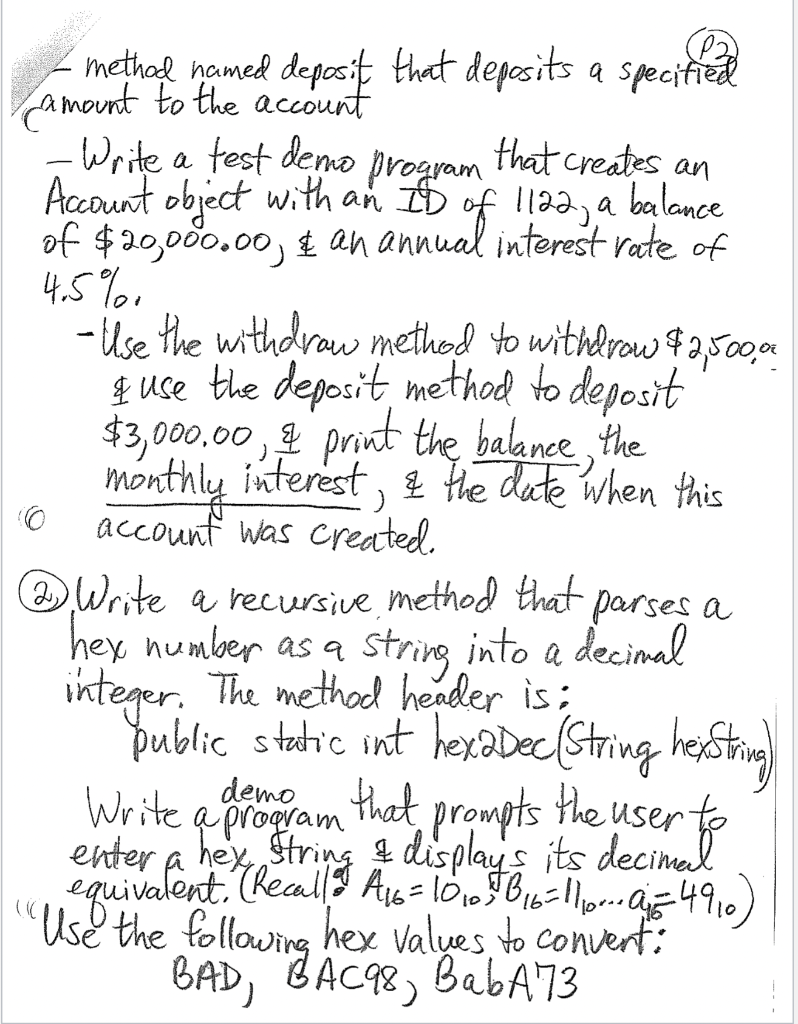 P2
- method named deposit that deposits a specified
amount to the account
- Write a test demo program that creates an
Account object with an ID of 1122, a balance
of $20,000.00, & an annual interest rate of
4.5%.
- Use the withdraw method to withdraw $2,500.00
& use the deposit method to deposit
$3,000.00, & print the balance, the
monthly interest, & the date when this
account was created.
2. Write a recursive method that parses a
hex number as a string into a decimal
integer. The method header is:
public static int hex2Dec(String hexString)
Write a demo program that prompts the user to
enter a hex string & displays its decimal
equivalent. (Recall: A16 = 1010, B16 = 1110... a16 = 4910)
Use the following hex values to convert:
BAD, BAC98, BabA73